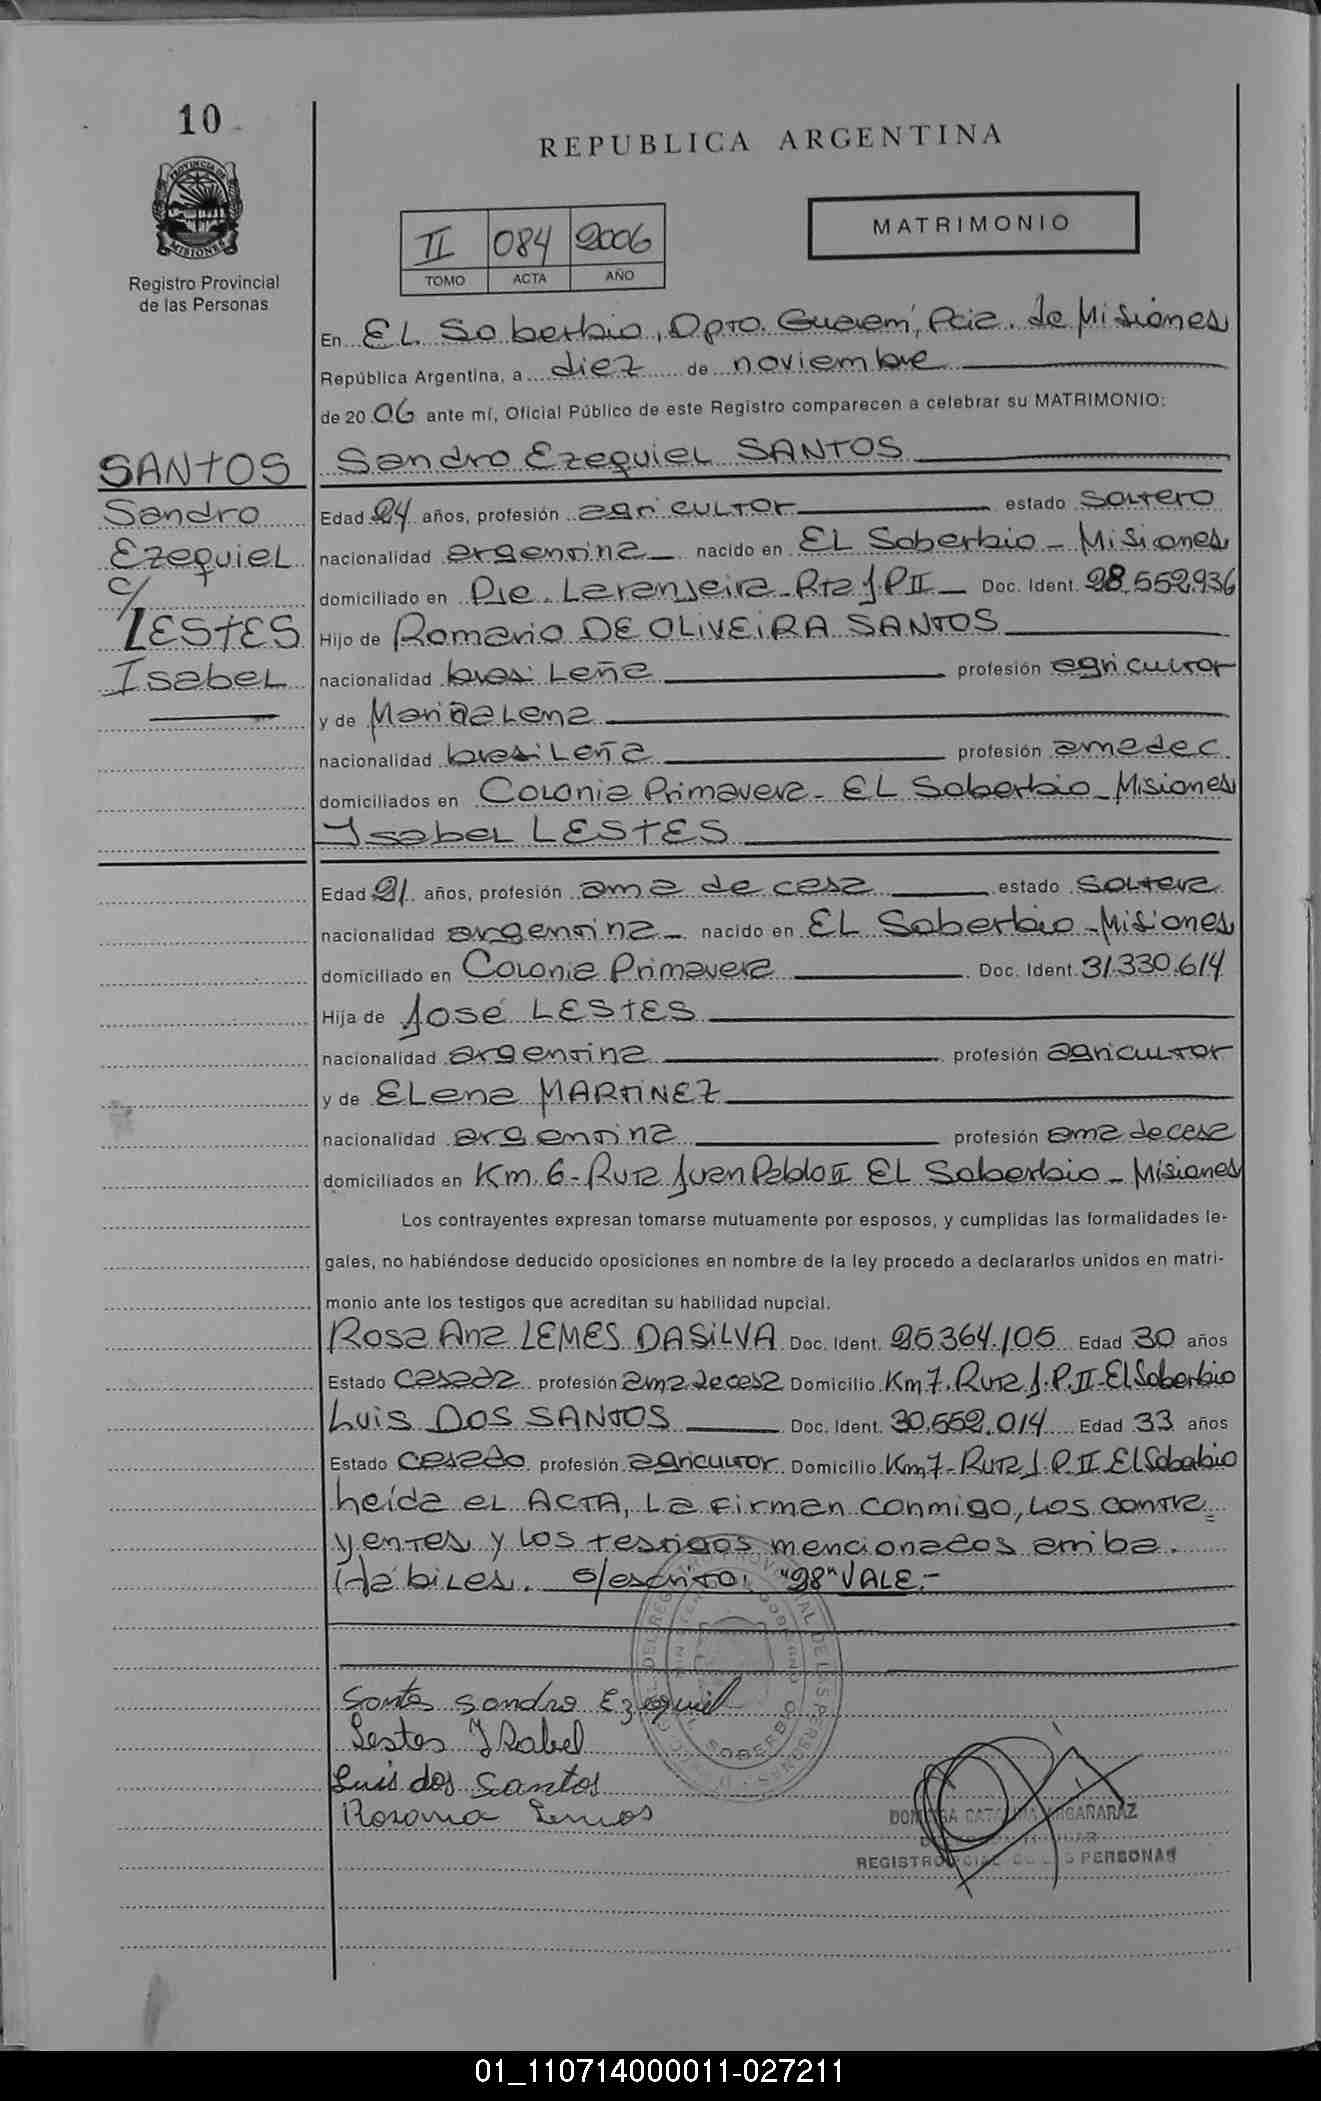 10
PROVINCIA DE
MISIONES
Registro Provincial
de las Personas
REPUBLICA ARGENTINA
MATRIMONIO
II 084 2006
TOMO ACTA AÑO
En El Soberbio, Dpto. Guaraní, Pcia. de Misiones
República Argentina, a diez de noviembre
de 2006 ante mí, Oficial Público de este Registro comparecen a celebrar su MATRIMONIO:
SANTOS
Sandro
Ezequiel
c/
LESTES
Isabel
Sandro Ezequiel SANTOS
Edad 24 años, profesión agricultor estado soltero
nacionalidad argentina nacido en El Soberbio - Misiones
domiciliado en Pje. Laranjeira - Rta J.P.II - Doc. Ident. 28.552.936
Hijo de Romario DE OLIVEIRA SANTOS
nacionalidad brasileña profesión agricultor
y de
nacionalidad brasileña profesión ama de c.
domiciliados en Colonia Primavera - El Soberbio - Misiones
Isabel LESTES
Edad 21 años, profesión ama de casa estado soltera
nacionalidad argentina - nacido en El Soberbio - Misiones
domiciliado en Colonia Primavera Doc. Ident. 31.330.614
Hija de José LESTES
nacionalidad argentina profesión agricultor
y de Elena MARTINEZ
nacionalidad argentina profesión ama de casa
domiciliados en Km. 6 - Ruta Juan Pablo II El Soberbio - Misiones
Los contrayentes expresan tomarse mutuamente por esposos, y cumplidas las formalidades le-
gales, no habiéndose deducido oposiciones en nombre de la ley procedo a declararlos unidos en matri-
monio ante los testigos que acreditan su habilidad nupcial.
Rosa Ana LEMES DA SILVA Doc. Ident. 25.364.105 Edad 30 años
Estado casada profesión ama de casa Domicilio Km 7. Ruta J.P.II - El Soberbio
Luis DOS SANTOS Doc. Ident. 30.552.014 Edad 33 años
Estado casado profesión agricultor Domicilio Km 7 - Ruta J.P.II El Soberbio
Leída el ACTA, la firman conmigo, los contra=
yentes y los testigos mencionados arriba.
Hábiles. s/escrito: "28" VALE.-
Santos Sandro Ezequiel
Lestes Isabel
Luis dos Santos
Rosana Lemos
SOBERBIO
REGISTRO PERSONAS
01_110714000011-027211